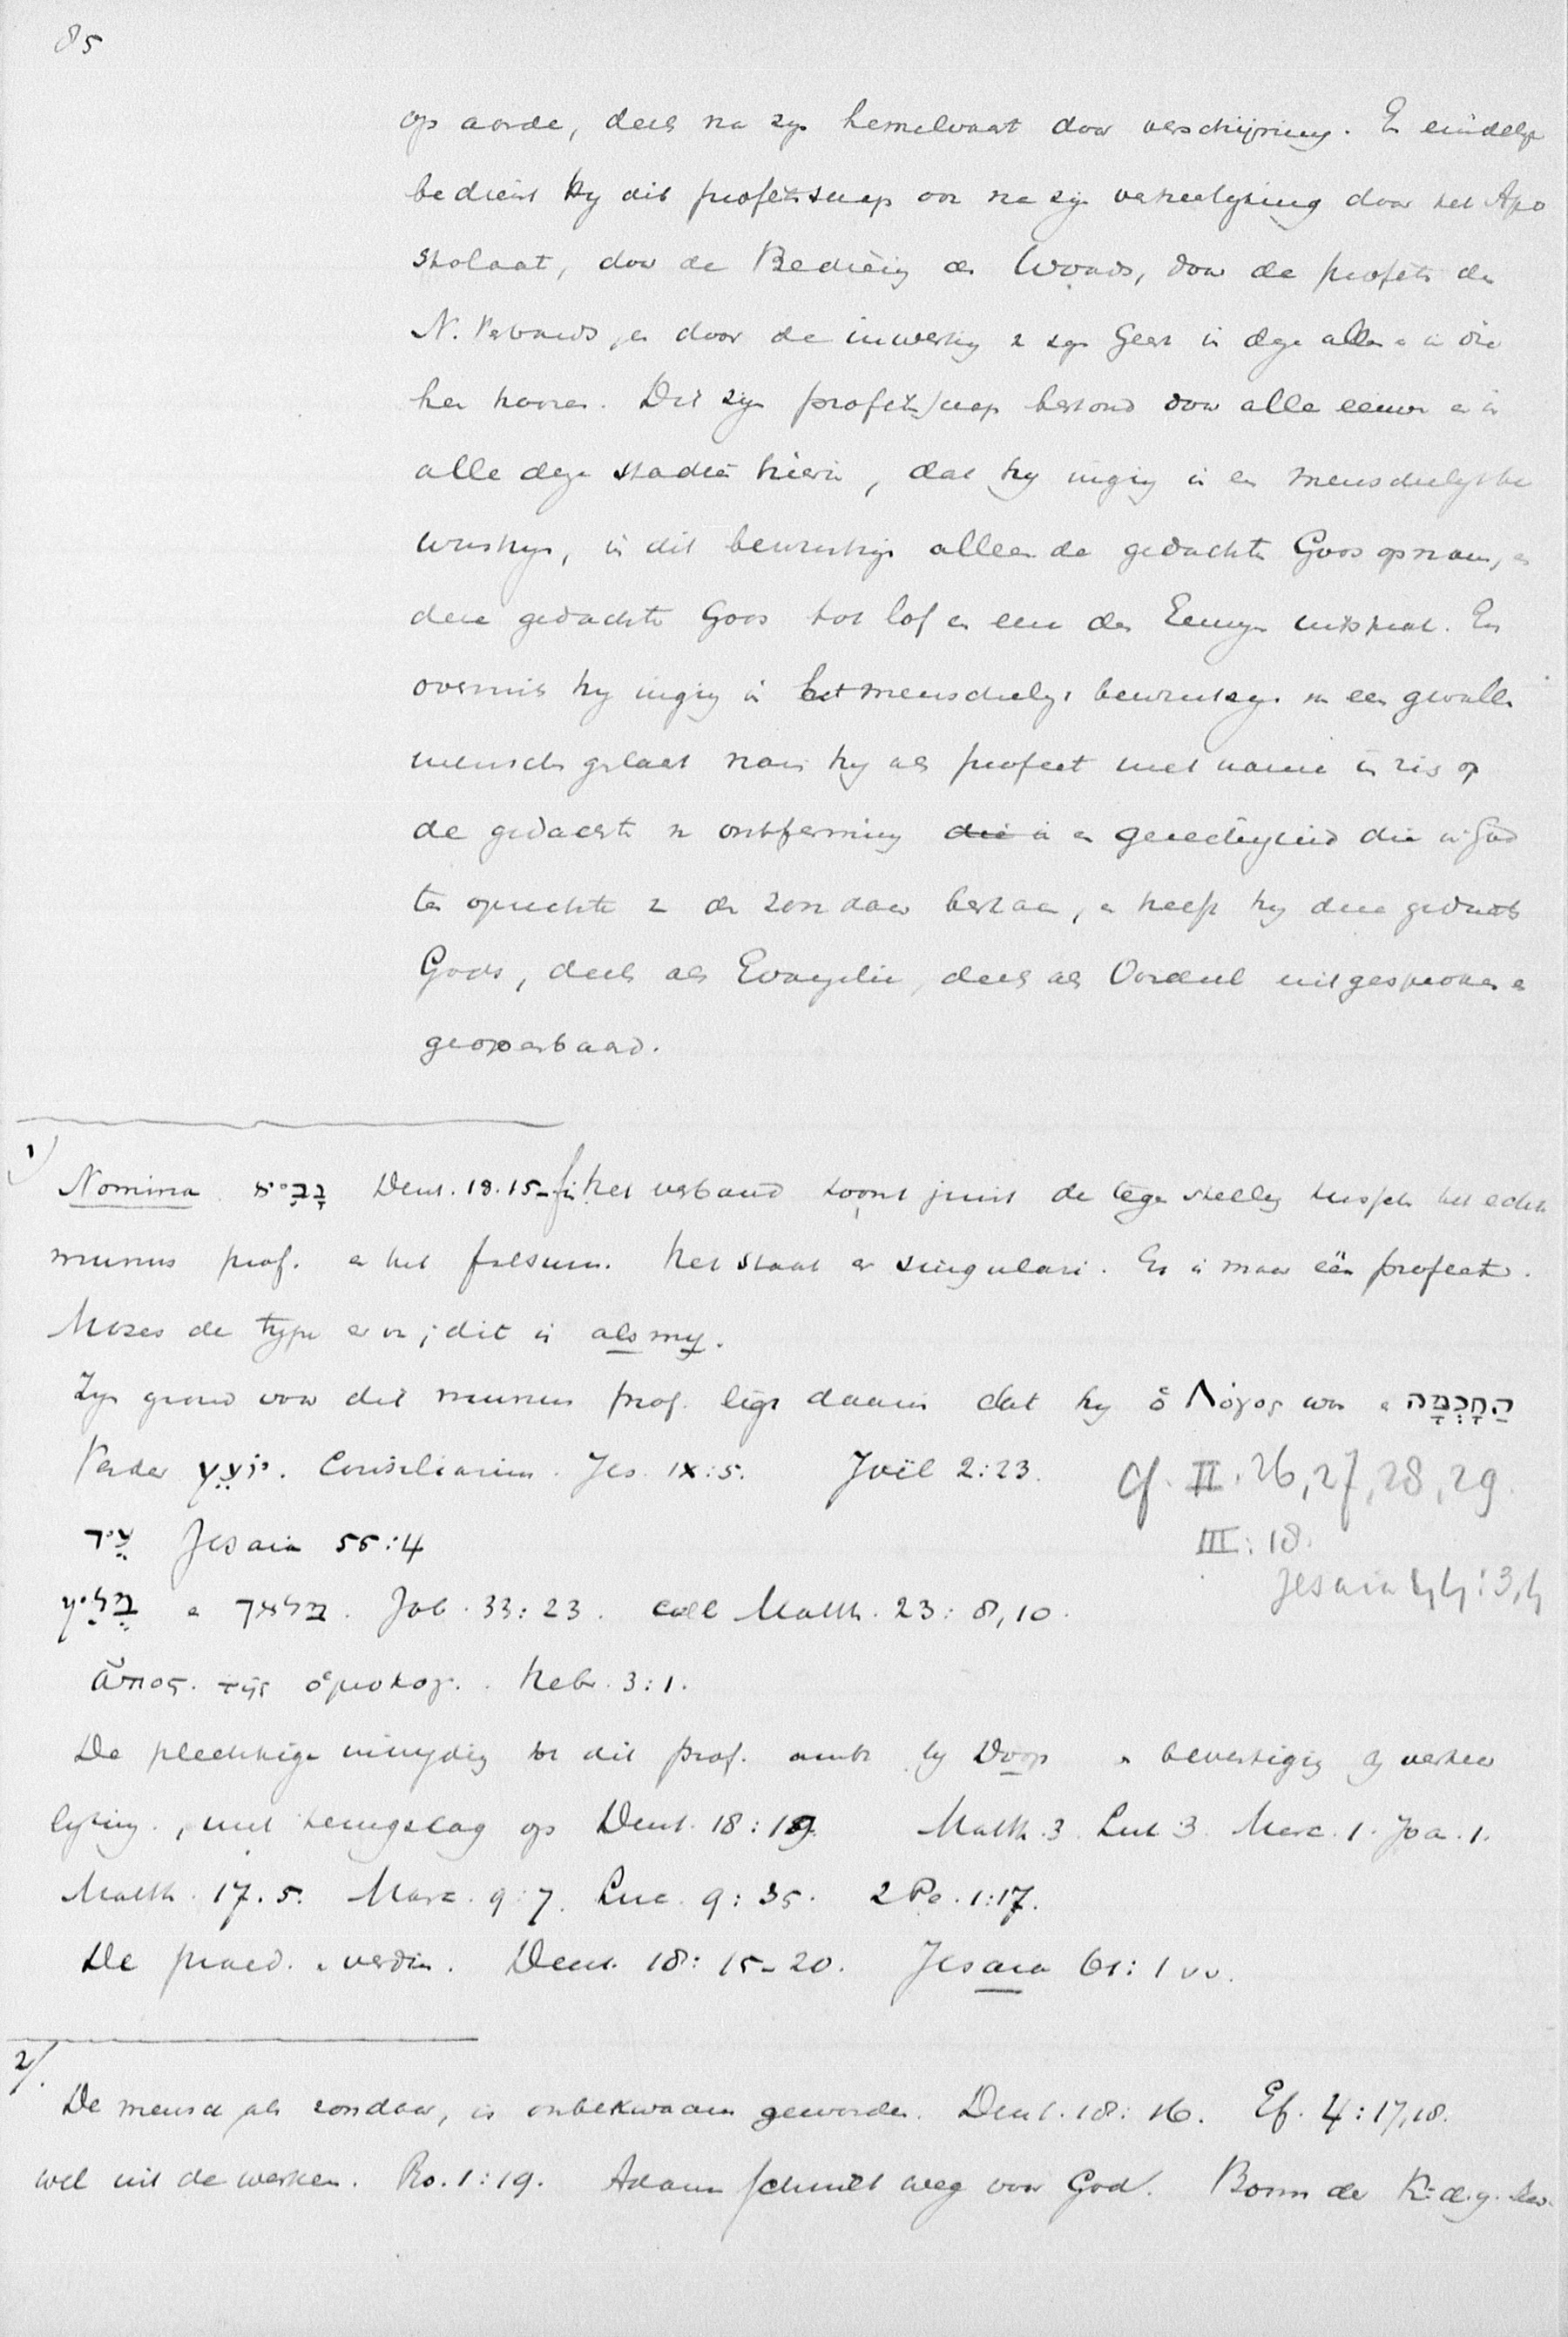 85
op aarde, deels na zijn hemelvaart door verschijning. En eindelijk
bedient hij dit profetschap ook na zijn verheerlijking door het Apo
stolaat, door de Bediening des Woords, door de profeten des
N. Verbonds, en door de inwerking van zijn Geest in deze allen en in die
hen hooren. Dit zijn profetschap bestond door alle eeuwen en in
alle deze stadien hierin, dat hij inging in een menschelijk be
wustzijn, in dit bewustzijn alleen de gedachten Gods opnam, en
deze gedachte Gods tot lof en eere des Eeuwigen uitsprak. En
overmits hij inging in het menschelijk bewustzijn van een gevallen
menschengeslacht nam hij als profeet met name in zich op
de gedachte van ontferming die in en gerechtigheid die in God
ten opzichte van den zondaar bestaan, en heeft hij deze gedachte
Gods, deels als Evangelie, deels als Oordeel uitgesproken en
geopenbaard.
1)
Nomina נָבִיא Deut. 18.15 Het verband toont juist de tegenstelling tusschen het echte
munus prof. en het falsum. Het staat er singulari. Er is maar één profeet.
Mozes de type ervan; dit is als mij.
Zijn grond voor dit munus prof. ligt daarin dat hij ὁ Λόγος was en הַחָכְמָה
Verder יוֹעֵץ. Consiliarius. Jes. IX:5. Joël 2:23. cf. II. 26, 27, 28, 29.
עֵד Jesaia 55:4 III: 18.
Jesaia 44:3,4
מֵלִיץ en מלאך. Job. 33:23. coll Matth. 23: 8,10.
ἄποσ. τῆς ὁμολογ. Hebr. 3:1.
De plechtige inwijding tot dit prof. ambt bij Doop en bevestiging bij verheer
lijking, met terugslag op Deut. 18:19. Matth. 3. Luc 3. Marc. 1. Joa. 1.
Matth. 17.5. Marc. 9:7. Luc. 9:35. 2 Pe. 1:17.
De praed. Deut. 18: 15-20. Jesaia 61: 1 vv.
2)
De mensch als zondaar, is onbekwaam geworden. Deut. 18: 16. Ef. 4:17,18.
wel uit de werken. Ro. 1:19. Adam schuilt weg voor God.